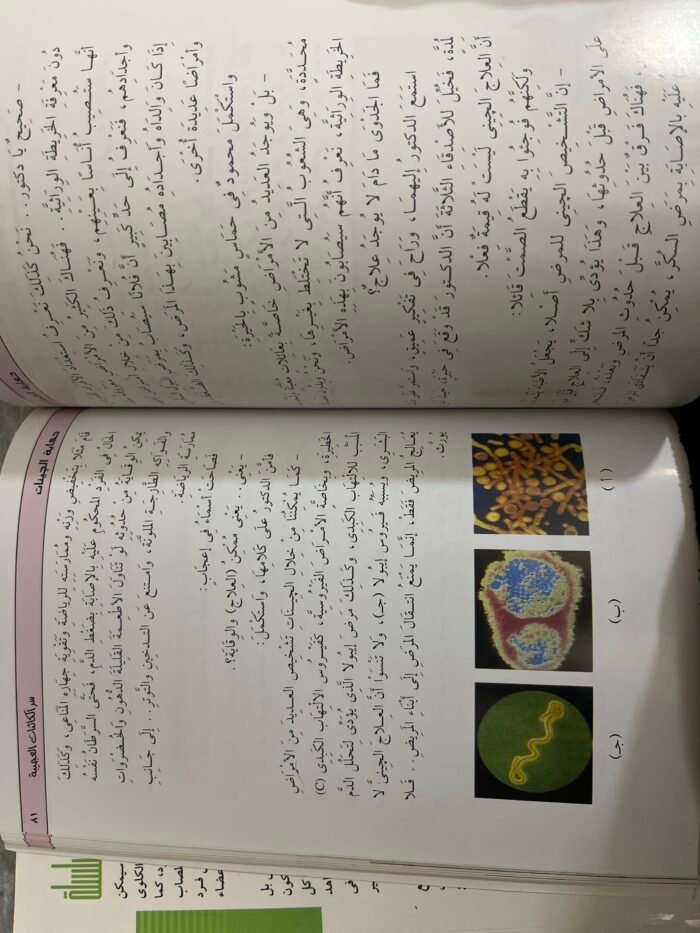 - صَحِيحٌ يَا دُكْتُور.. نَحْنُ كَذَلِكَ نَعْرِفُ اسْتِعْدَادَ
دُونَ مَعْرِفَةِ الْخَرِيطَةِ الْوِرَاثِيَّةِ.. فَهُنَاكَ الْكَثِيرُ مِنَ الأَمْرَاضِ
أَنَّهَا سَتُصِيبُ أُنَاسًا بِعَيْنِهِمْ، وَنَعْرِفُ ذَلِكَ مِنْ خِلَالِ
وَأَجْدَادِهِمْ، فَنَعْرِفُ إِلَى حَدٍّ كَبِيرٍ أَنَّ فُلَانًا سَيُصَابُ بِمَرَضِ
إِذَا كَانَ وَالِدَاهُ وَأَجْدَادُهُ مُصَابِينَ بِهَذَا الْمَرَضِ، وَكَذَلِكَ
وَأَمْرَاضًا عَدِيدَةً أُخْرَى.
وَاسْتَكْمَلَ مَحْمُودٌ فِى حَمَاسٍ مَشُوبٍ بِالْحَيْرَةِ:
- بَلْ وَيُوجَدُ الْعَدِيدُ مِنَ الأَمْرَاضِ خَاصَّةٌ بِعَائِلَاتٍ
مُحَدَّدَةٍ، وَهِىَ الشُّعُوبُ الَّتِى لَا تَخْتَلِطُ بِغَيْرِهَا، وَنَحْنُ
الْخَرِيطَةِ الْوِرَاثِيَّةِ، نَعْرِفُ أَنَّهُمْ سَيُصَابُونَ بِهَذِهِ الأَمْرَاضِ.
فَمَا الْجَدْوَى مَا دَامَ لَا يُوجَدُ عِلَاجٌ؟
اسْتَمَعَ الدُّكْتُورُ إِلَيْهِمَا، وَرَاحَ فِى تَفْكِيرٍ عَمِيقٍ، وَاسْتَمَرَّ
لِمُدَّةٍ، فَخُيِّلَ لِلأَصْدِقَاءِ الثَّلَاثَةِ أَنَّ الدُّكْتُورَ قَدْ وَقَعَ فِى حَيْرَةٍ،
أَنَّ الْعِلَاجَ الْجِينِىَّ لَيْسَتْ لَهُ قِيمَةٌ فِعْلًا.
وَلَكِنَّهُمْ فُوجِئُوا بِهِ يَقْطَعُ الصَّمْتَ قَائِلًا:
- إِنَّ التَّشْخِيصَ الْجِينِىَّ لِلْمَرَضِ أَصْلًا، يَجْعَلُ الأَطِبَّاءَ
عَلَى الأَمْرَاضِ قَبْلَ حُدُوثِهَا، وَهَذَا يُؤَدِّى بِلَا شَكٍّ إِلَى الْعِلَاجِ
، فَهُنَاكَ فَرْقٌ بَيْنَ الْعِلَاجِ قَبْلَ حُدُوثِ الْمَرَضِ وَبَعْدَهُ،
عَلَيْهِ بِالإِصَابَةِ بِمَرَضِ السُّكَّرِ، يُمْكِنُ جِدًّا أَنْ يَتَفَادَى
حكاية الجينات
سر الكائنات العجيبة
٨١
قَامَ مَثَلًا بِتَخْفِيضِ وَزْنِهِ وَمُمَارَسَتِهِ لِلرِّيَاضَةِ وَتَقْوِيَةِ جِهَازِهِ الْمَنَاعِى، وَكَذَلِكَ
الْحَالُ فِى الْفَرْدِ الْمَحْكُومِ عَلَيْهِ بِالإِصَابَةِ بِضَغْطِ الدَّمِ، فَحَتَّى السَّرَطَانُ نَفْسُهُ
يُمْكِنُ الْوِقَايَةُ مِنْ حُدُوثِهِ لَوْ تَنَاوَلَ الأَطْعِمَةَ الْقَلِيلَةَ الدُّهُونِ وَالْخُضْرَوَاتِ
وَالْفَوَاكِهَ الطَّازَجَةَ الْمُلَوَّنَةَ، وَامْتَنَعَ عَنِ التَّدْخِينِ وَالتَّوَتُّرِ.. إِلَى جَانِبِ
مُمَارَسَةِ الرِّيَاضَةِ.
فَصَاحَتْ أَسْمَاءُ فِى إِعْجَابٍ:
- يَعْنِى.. يَعْنِى مُمْكِنُ (الْعِلَاجُ) وَالْوِقَايَةُ؟.
فَأَمَّنَ الدُّكْتُورُ عَلَى كَلَامِهَا، وَاسْتَكْمَلَ:
- كَمَا يُمْكِنُنَا مِنْ خِلَالِ الْجِينَاتِ تَشْخِيصُ الْعَدِيدِ مِنَ الأَمْرَاضِ
الْخَطِيرَةِ، وَبِخَاصَّةٍ الأَمْرَاضَ الْفَيْرُوسِيَّةَ، كَفَيْرُوسِ الالْتِهَابِ الْكَبِدِى (C)
الْمُسَبِّبِ لِلالْتِهَابِ الْكَبِدِى، وَكَذَلِكَ مَرَضُ إِيبُولَا الَّذِى يُؤَدِّى لِتَحَلُّلِ الدَّمِ
الْبَشَرِى، وَيُسَبِّبُهُ فَيْرُوسُ إِيبُولَا (جـ)، وَلَا تَنْسَوْا أَنَّ الْعِلَاجَ الْجِينِىَّ لَا
يُعَالِجُ الْمَرِيضَ فَقَطْ، إِنَّمَا يَمْنَعُ انْتِقَالَ الْمَرَضِ إِلَى أَبْنَاءِ الْمَرِيضِ.. فَلَا
يُورَثُ.
(أ)
(ب)
(جـ)
سيمكن
الكلوى